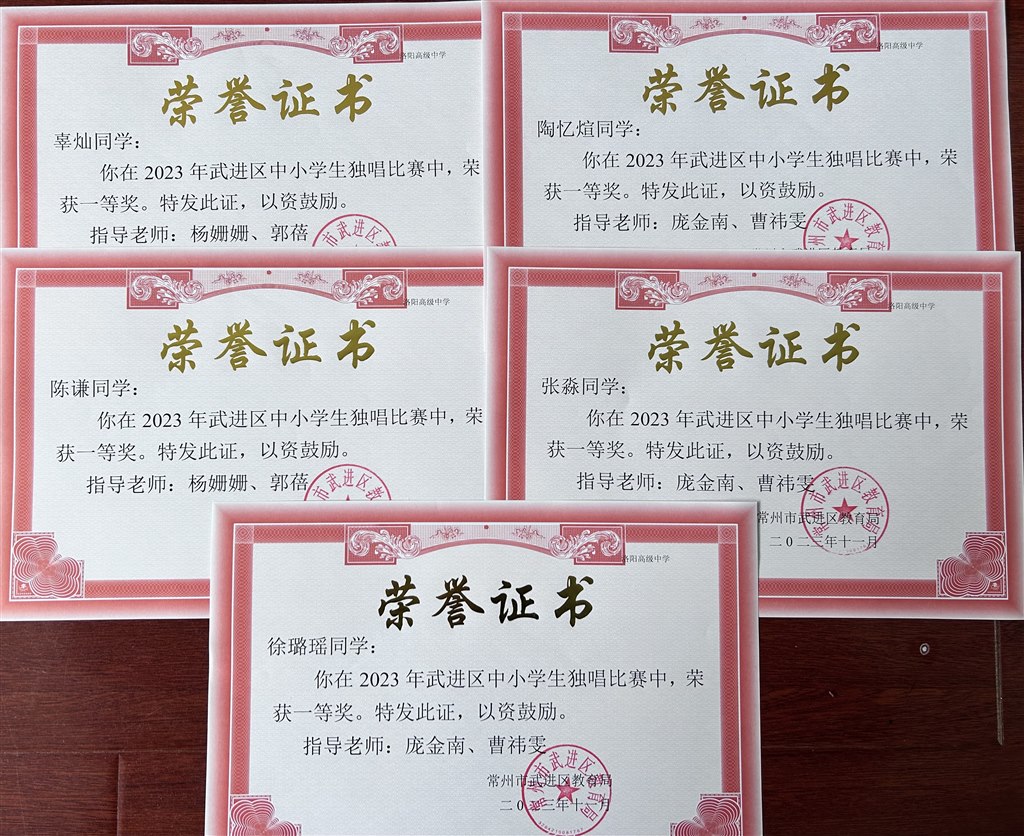 洛阳高级中学
荣誉证书
辜灿同学：
你在 2023 年武进区中小学生独唱比赛中，荣
获一等奖。特发此证，以资鼓励。
指导老师：杨姗姗、郭蓓
市武进区教
洛阳高级中学
荣誉证书
陶忆煊同学：
你在 2023 年武进区中小学生独唱比赛中，荣
获一等奖。特发此证，以资鼓励。
指导老师：庞金南、曹祎雯
州市武进区教育
洛阳高级中学
荣誉证书
陈谦同学：
你在 2023 年武进区中小学生独唱比赛中，荣
获一等奖。特发此证，以资鼓励。
指导老师：杨姗姗、郭蓓
市武进区教
洛阳高级中学
荣誉证书
张淼同学：
你在 2023 年武进区中小学生独唱比赛中，荣
获一等奖。特发此证，以资鼓励。
指导老师：庞金南、曹祎雯
常州市武进区教育局
常州市武进区教育局
二0二三年十一月
洛阳高级中学
荣誉证书
徐璐瑶同学：
你在 2023 年武进区中小学生独唱比赛中，荣
获一等奖。特发此证，以资鼓励。
指导老师：庞金南、曹祎雯
常州市武进区教育局
常州市武进区教育局
二0二三年十一月